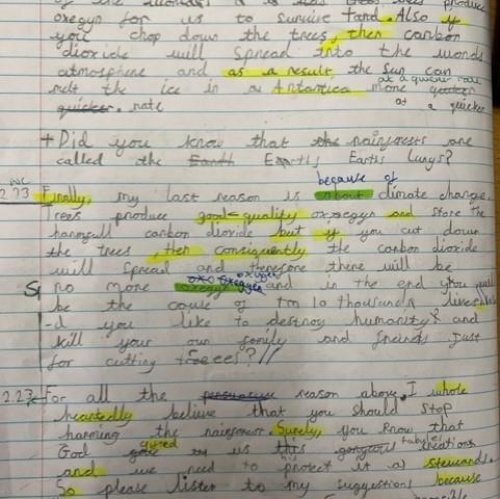 oxegyn for us to survive and. Also if
you chop down the trees, then carbon
dioxide will spread into the worlds
atmosphere and as a result, the sun can
melt the ice in a Antartica more quicker at a quicker rate
quicker. rate at a quicker
+ Did you know that the rainforests are
called the Earth Earths Earths Lungs?
because of
2.23 Finally, my last reason is about climate change.
Trees produce good-quality oxegyn and store the
harmfull carbon dioxide but if you cut down
the trees, then consiquently the carbon dioxide
will spread and therefore there will be
oxygen
S no more oxegyn and in the end you will
be the cause of 10 thousands lives
-d you like to destroy humanity? and
kill your own family and friends just
for cutting trees?//
2.23 For all the persuasive reason above, I whole
heartedly believe that you should stop
harming the rainforest. Surely, you know that
God gived us this creations
and we need to protect it as stewards.
So please listen to my suggestions because